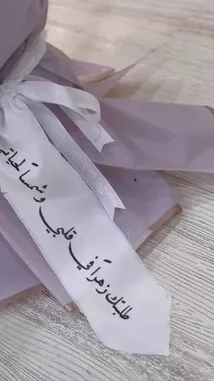 طلبتك زهراً في قلبي وشمساً لحياتي